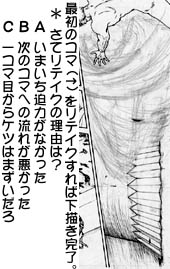 最初のコマ(→)をリテイクすれば下描き完了。
＊ さてリテイクの理由は？
A いまいち迫力がなかった
B 次のコマへの流れが悪かった
C 一コマ目からケツはまずいだろ